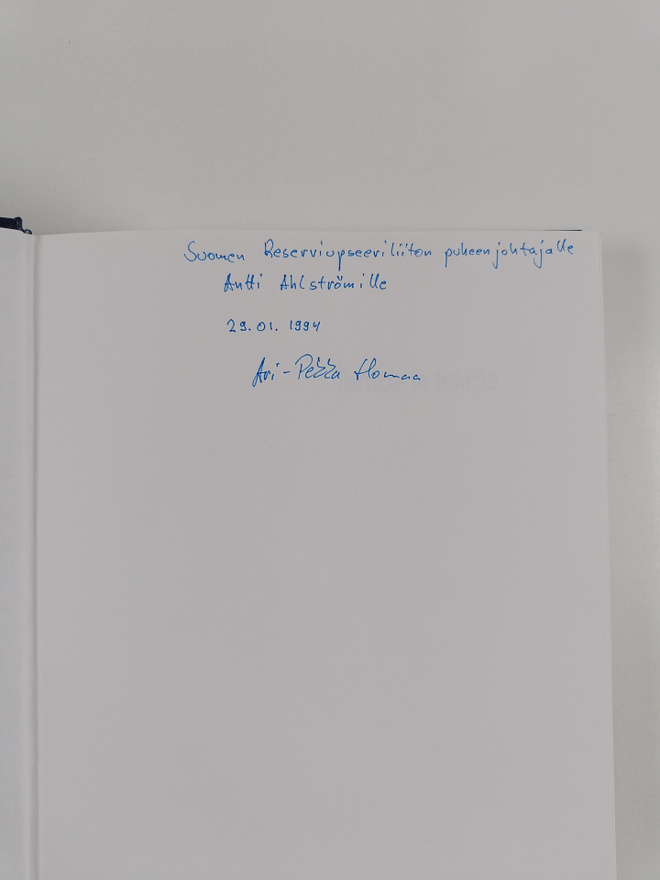 Suomen Reserviupseeriliiton puheenjohtajalle
Antti Ahlströmille
29.01. 1994
Ari-Pekka Homaa